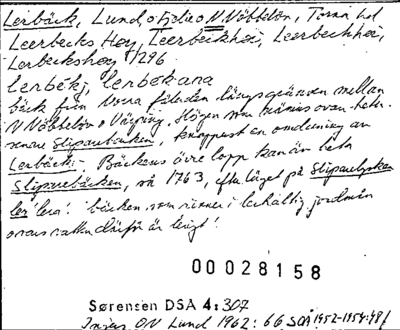 Lerbäck, Lund o Fjelie o N. Nöbbelöv, Torna hd
Leerbecks Høy, Leerbeckhøi, Leerbeckhøi,
Lerbeckshøy 1296
lerbékj, lerbékana
bäck från Vorna fäladen längs gränsen mellan
N Nöbbelöv o Värping. Högen som nämns ovan heter
senare Sliparebacken, knappast en omdaning av
Lerbäck:- Bäckens övre lopp kan än heta
Sliparebäcken, så 1763, efter läget på Sliparelyckan
ler 'lera'. bäcken som rinner i lerhaltig jordmån
vars vatten därför är lerigt!
00028158
Sørensen DSA 4:307
Ingers ON Lund 1962: 66 SOÅ 1952-1954:48f